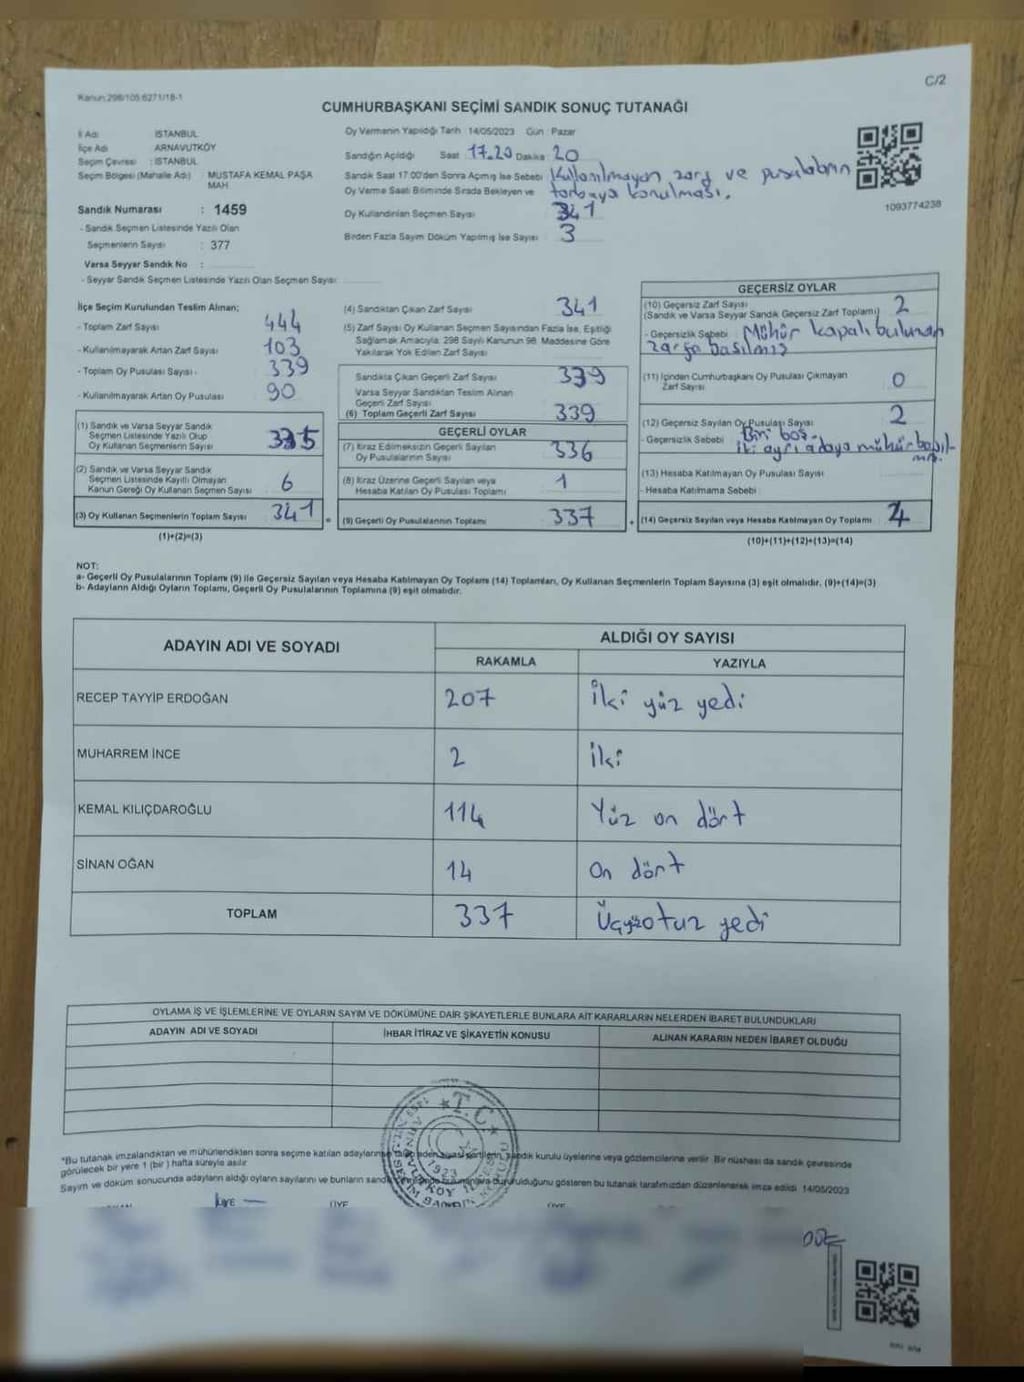 Kanun:298/105 6271/18-1
C/2
CUMHURBAŞKANI SEÇİMİ SANDIK SONUÇ TUTANAĞI
İl Adı : İSTANBUL
İlçe Adı : ARNAVUTKÖY
Seçim Çevresi : İSTANBUL
Seçim Bölgesi (Mahalle Adı) : MUSTAFA KEMAL PAŞA
MAH
Sandık Numarası : 1459
- Sandık Seçmen Listesinde Yazılı Olan
Seçmenlerin Sayısı : 377
Varsa Seyyar Sandık No :
- Seyyar Sandık Seçmen Listesinde Yazılı Olan Seçmen Sayısı
Oy Vermenin Yapıldığı Tarih 14/05/2023 Gün : Pazar
Sandığın Açıldığı Saat 17.20 Dakika 20
Sandık Saat 17:00'den Sonra Açılmış İse Sebebi Kullanılmayan zarf ve pusulaların
Oy Verme Saati Bitiminde Sırada Bekleyen ve torbaya konulması.
Oy Kullandırılan Seçmen Sayısı 341
Birden Fazla Sayım Döküm Yapılmış İse Sayısı 3
1093774238
İlçe Seçim Kurulundan Teslim Alınan;
- Toplam Zarf Sayısı 444
- Kullanılmayarak Artan Zarf Sayısı 103
- Toplam Oy Pusulası Sayısı 339
- Kullanılmayarak Artan Oy Pusulası 90
(1) Sandık ve Varsa Seyyar Sandık
Seçmen Listesinde Yazılı Olup
Oy Kullanan Seçmenlerin Sayısı 335
(2) Sandık ve Varsa Seyyar Sandık
Seçmen Listesinde Kayıtlı Olmayan
Kanun Gereği Oy Kullanan Seçmen Sayısı 6
(3) Oy Kullanan Seçmenlerin Toplam Sayısı 341
(1)+(2)=(3)
(4) Sandıktan Çıkan Zarf Sayısı 341
(5) Zarf Sayısı Oy Kullanan Seçmen Sayısından Fazla İse, Eşitliği
Sağlamak Amacıyla, 298 Sayılı Kanunun 98. Maddesine Göre
Yakılarak Yok Edilen Zarf Sayısı
Sandıkta Çıkan Geçerli Zarf Sayısı 339
Varsa Seyyar Sandıktan Teslim Alınan
Geçerli Zarf Sayısı
(6) Toplam Geçerli Zarf Sayısı 339
GEÇERLİ OYLAR
(7) İtiraz Edilmeksizin Geçerli Sayılan
Oy Pusulalarının Sayısı 336
(8) İtiraz Üzerine Geçerli Sayılan veya
Hesaba Katılan Oy Pusulası Toplamı 1
(9) Geçerli Oy Pusulalarının Toplamı 337
GEÇERSİZ OYLAR
(10) Geçersiz Zarf Sayısı
(Sandık ve Varsa Seyyar Sandık Geçersiz Zarf Toplamı) 2
- Geçersizlik Sebebi : Mühür kapalı bulunan
zarfa basılmış
(11) İçinden Cumhurbaşkanı Oy Pusulası Çıkmayan
Zarf Sayısı 0
(12) Geçersiz Sayılan Oy Pusulası Sayısı 2
- Geçersizlik Sebebi Biri boş.
iki ayrı adaya mühür basıl-
mış.
(13) Hesaba Katılmayan Oy Pusulası Sayısı
- Hesaba Katılmama Sebebi :
(14) Geçersiz Sayılan veya Hesaba Katılmayan Oy Toplamı 4
(10)+(11)+(12)+(13)=(14)
NOT:
a- Geçerli Oy Pusulalarının Toplamı (9) ile Geçersiz Sayılan veya Hesaba Katılmayan Oy Toplamı (14) Toplamları, Oy Kullanan Seçmenlerin Toplam Sayısına (3) eşit olmalıdır. (9)+(14)=(3)
b- Adayların Aldığı Oyların Toplamı, Geçerli Oy Pusulalarının Toplamına (9) eşit olmalıdır.
ADAYIN ADI VE SOYADI
ALDIĞI OY SAYISI
RAKAMLA YAZIYLA
RECEP TAYYİP ERDOĞAN 207 İki yüz yedi
MUHARREM İNCE 2 İki
KEMAL KILIÇDAROĞLU 114 Yüz on dört
SİNAN OĞAN 14 On dört
TOPLAM 337 Üçyüzotuz yedi
OYLAMA İŞ VE İŞLEMLERİNE VE OYLARIN SAYIM VE DÖKÜMÜNE DAİR ŞİKAYETLERLE BUNLARA AİT KARARLARIN NELERDEN İBARET BULUNDUKLARI
ADAYIN ADI VE SOYADI İHBAR İTİRAZ VE ŞİKAYETİN KONUSU ALINAN KARARIN NEDEN İBARET OLDUĞU
T.C.
1923
*Bu tutanak imzalandıktan ve mühürlendikten sonra seçime katılan adayların siyasi partilerin, sandık kurulu üyelerine veya gözlemcilerine verilir. Bir nüshası da sandık çevresinde
görülecek bir yere 1 (bir) hafta süreyle asılır
Sayım ve döküm sonucunda adayların aldığı oyların sayılarını ve bunların sandık bulunduğunu gösteren bu tutanak tarafımızdan düzenlenerek imza edildi. 14/05/2023
ÜYE
ÜYE